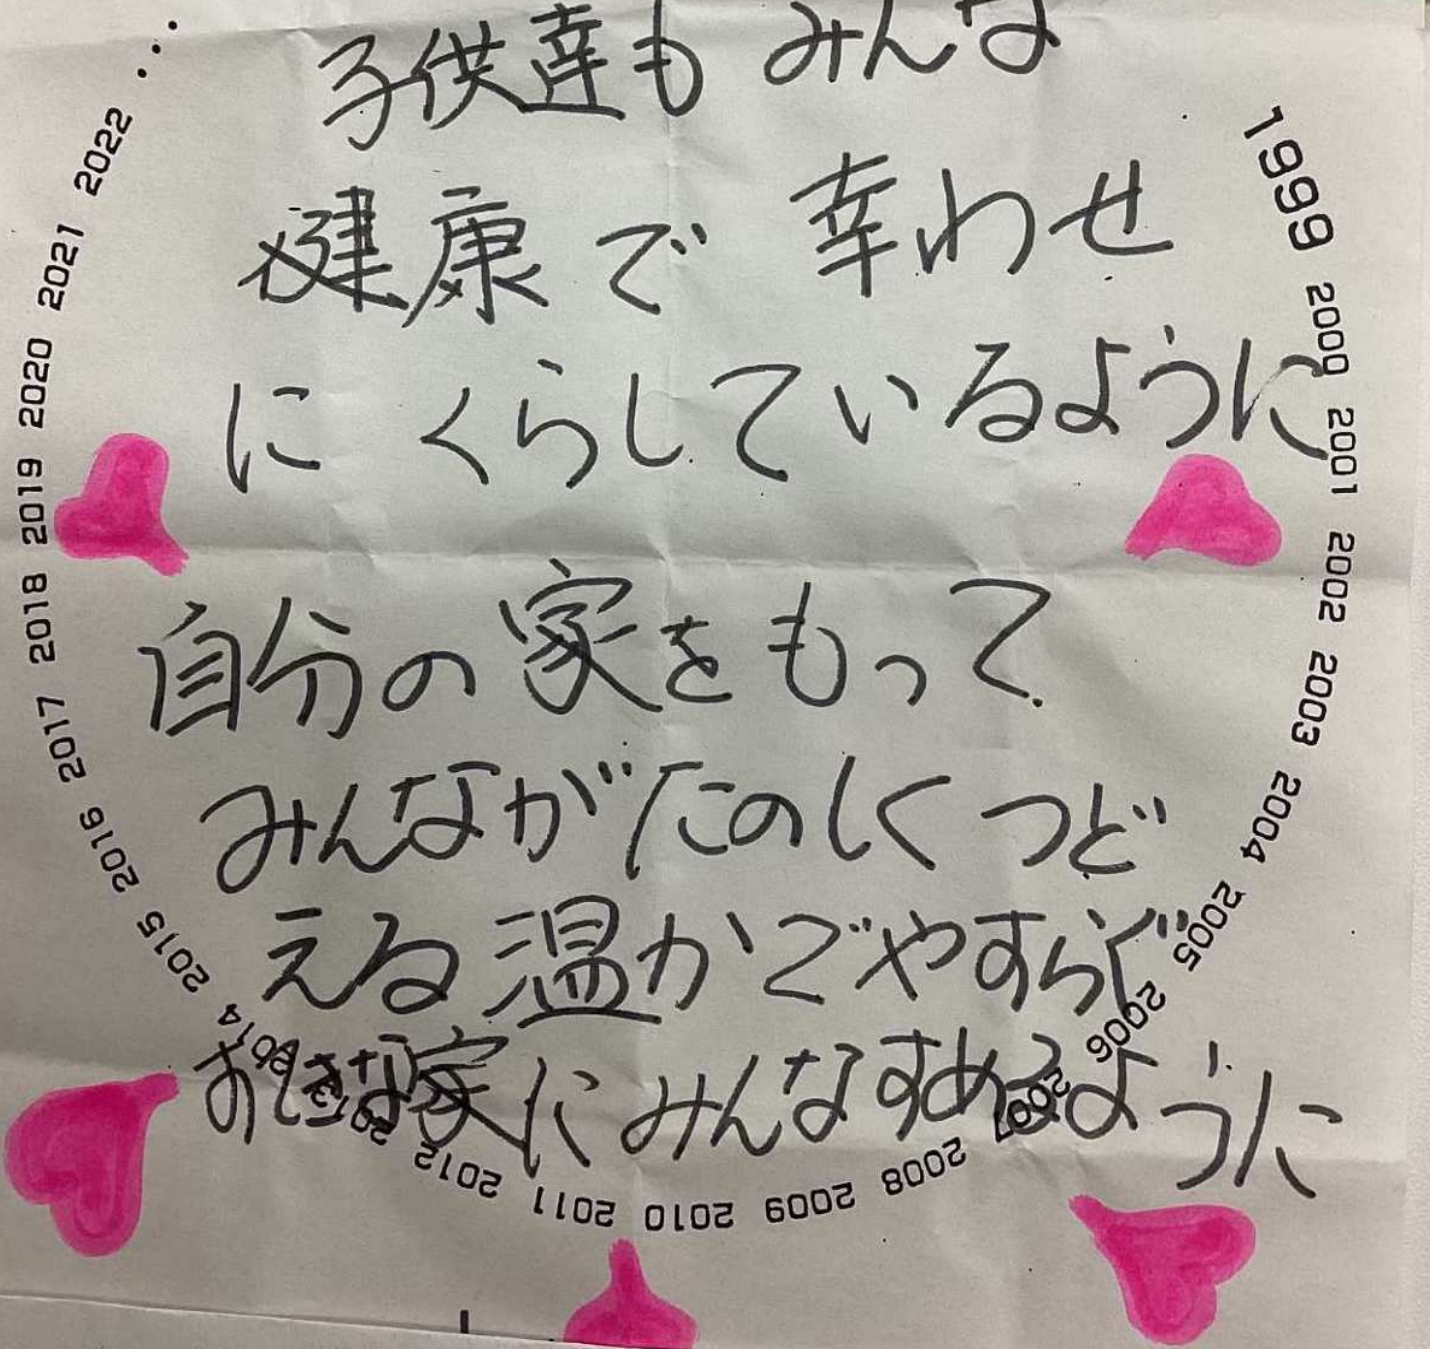 子供達も みんな
健康で 幸わせ
に くらしているように
自分の家をもって
みんながたのしく つど
える温かでやすらぐ
おしきな家に みんなすめるように
1999 2000 2001 2002 2003 2004 2005 2006 2007 2008 2009 2010 2011 2012 2013 2014 2015 2016 2017 2018 2019 2020 2021 2022 ...